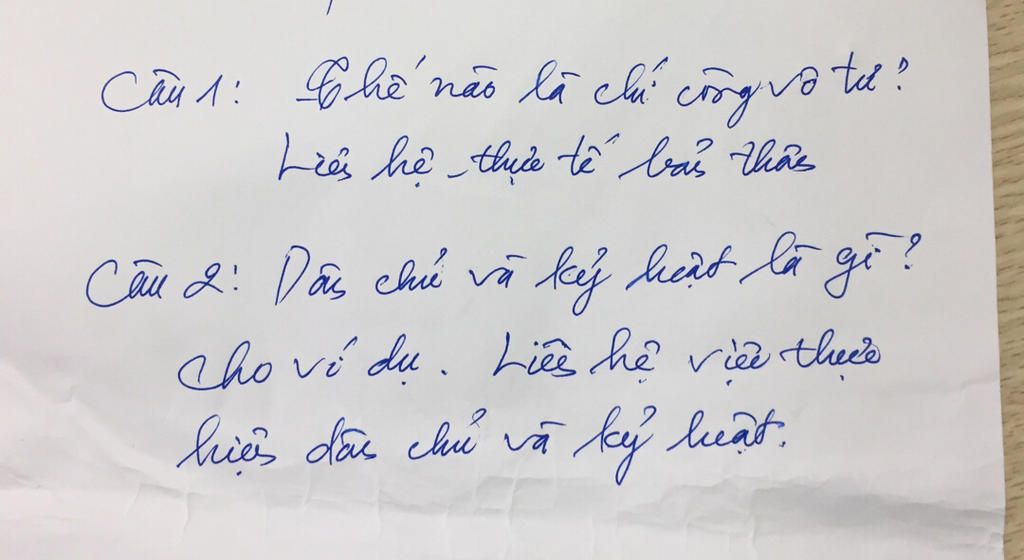 Câu 1: Thế nào là chí công vô tư?
Liên hệ thực tế bản thân
Câu 2: Dân chủ và kỷ luật là gì?
cho ví dụ. Liên hệ việc thực
hiện dân chủ và kỷ luật.